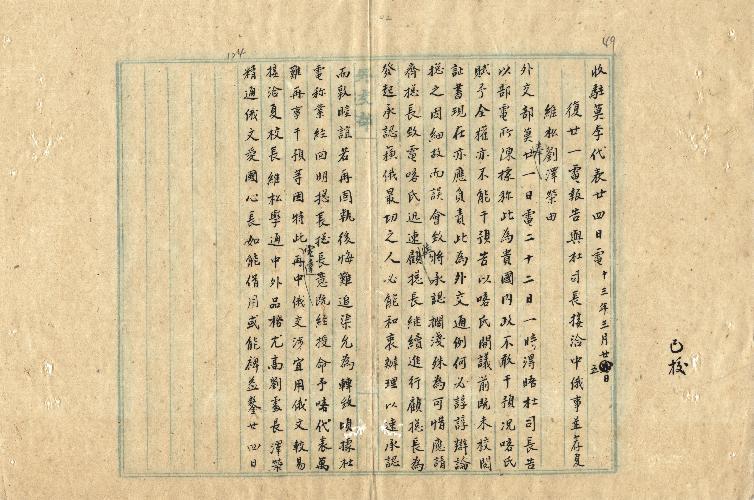 49
124
收駐莫李代表廿四日電 十三年三月廿五日
復廿一電報告與杜司長接洽中俄事並荐夏
維松劉澤榮由
外交部莫廿一日電奉二十二日一時淂晤杜司長告
以部電所陳據称此為貴國內政不敢干預況喀氏
賦予全權亦不能干預告以喀氏開議前既未校閱
証書現在亦應負責此為外交通例何必諄諄辯論
挽之因細故而誤會致將承認擱淺殊為可惜應請
齊挽長致電喀氏迅速與顧挽長継續進行顧挽長為
發起承認蘓俄最切之人必能和衷辦理以速承認
而敦睦誼若再固執後悔難追渠允為轉致頃據杜
電称業経回明挽長挽長意既経授命予喀代表萬
難再事干預等因特此電達再中俄交涉宜用俄文較易
接洽夏校長維松學通中外品格尤高劉委長澤榮
精通俄文愛國心長如能借用或能裨益鑒廿四日
已校